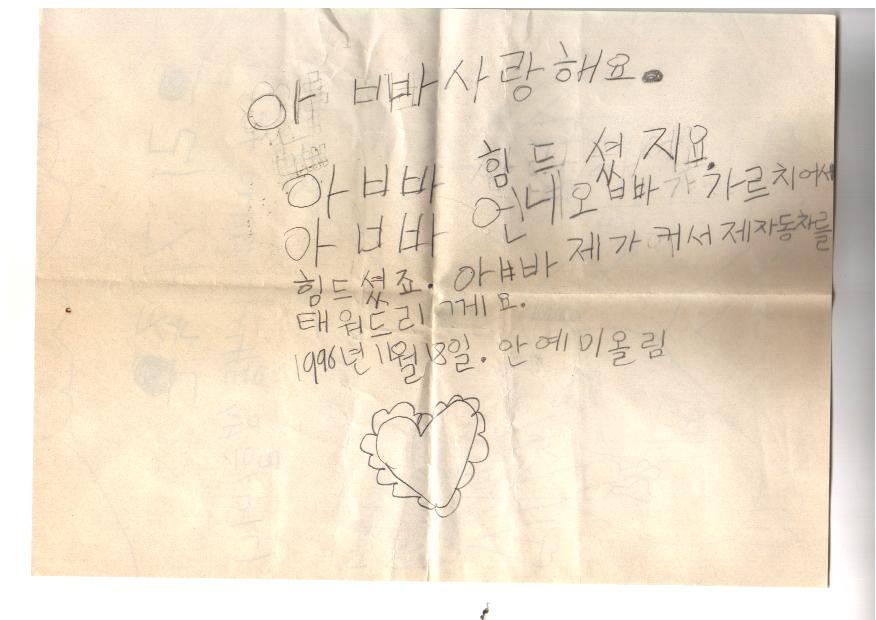 아 빠 사랑해요.
아 빠 힘 드 셨 지요.
아 빠 언니오빠가 가르치어서
힘드셨죠. 아빠 제가 커서 제자동차를
태워드리께요.
1996년 11월 18일. 안예미올림